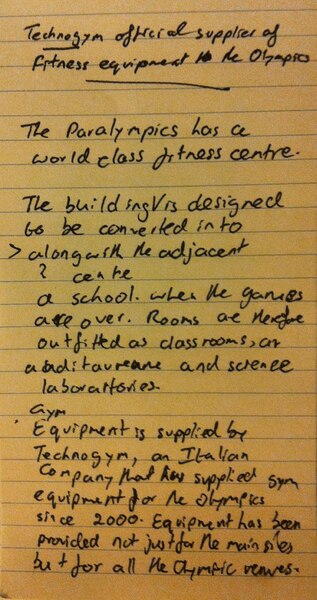 Technogym official supplier of
fitness equipment to the Olympics
The Paralympics has a
world class fitness centre.
The building is designed
to be converted into
> along with the adjacent
? centre
a school. when the games
are over. Rooms are therefore
outfitted as classrooms, an
and science
laborattories.
Gym
Equipment is supplied by
Technogym, an Italian
Company that has supplied gym
equipment for the Olympics
since 2000. Equipment has been
provided not just for the main sites
but for all the Olympic venues.